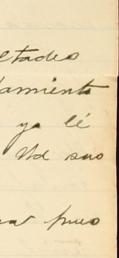 ltades
damiento
ya lé
Ud sus
pues